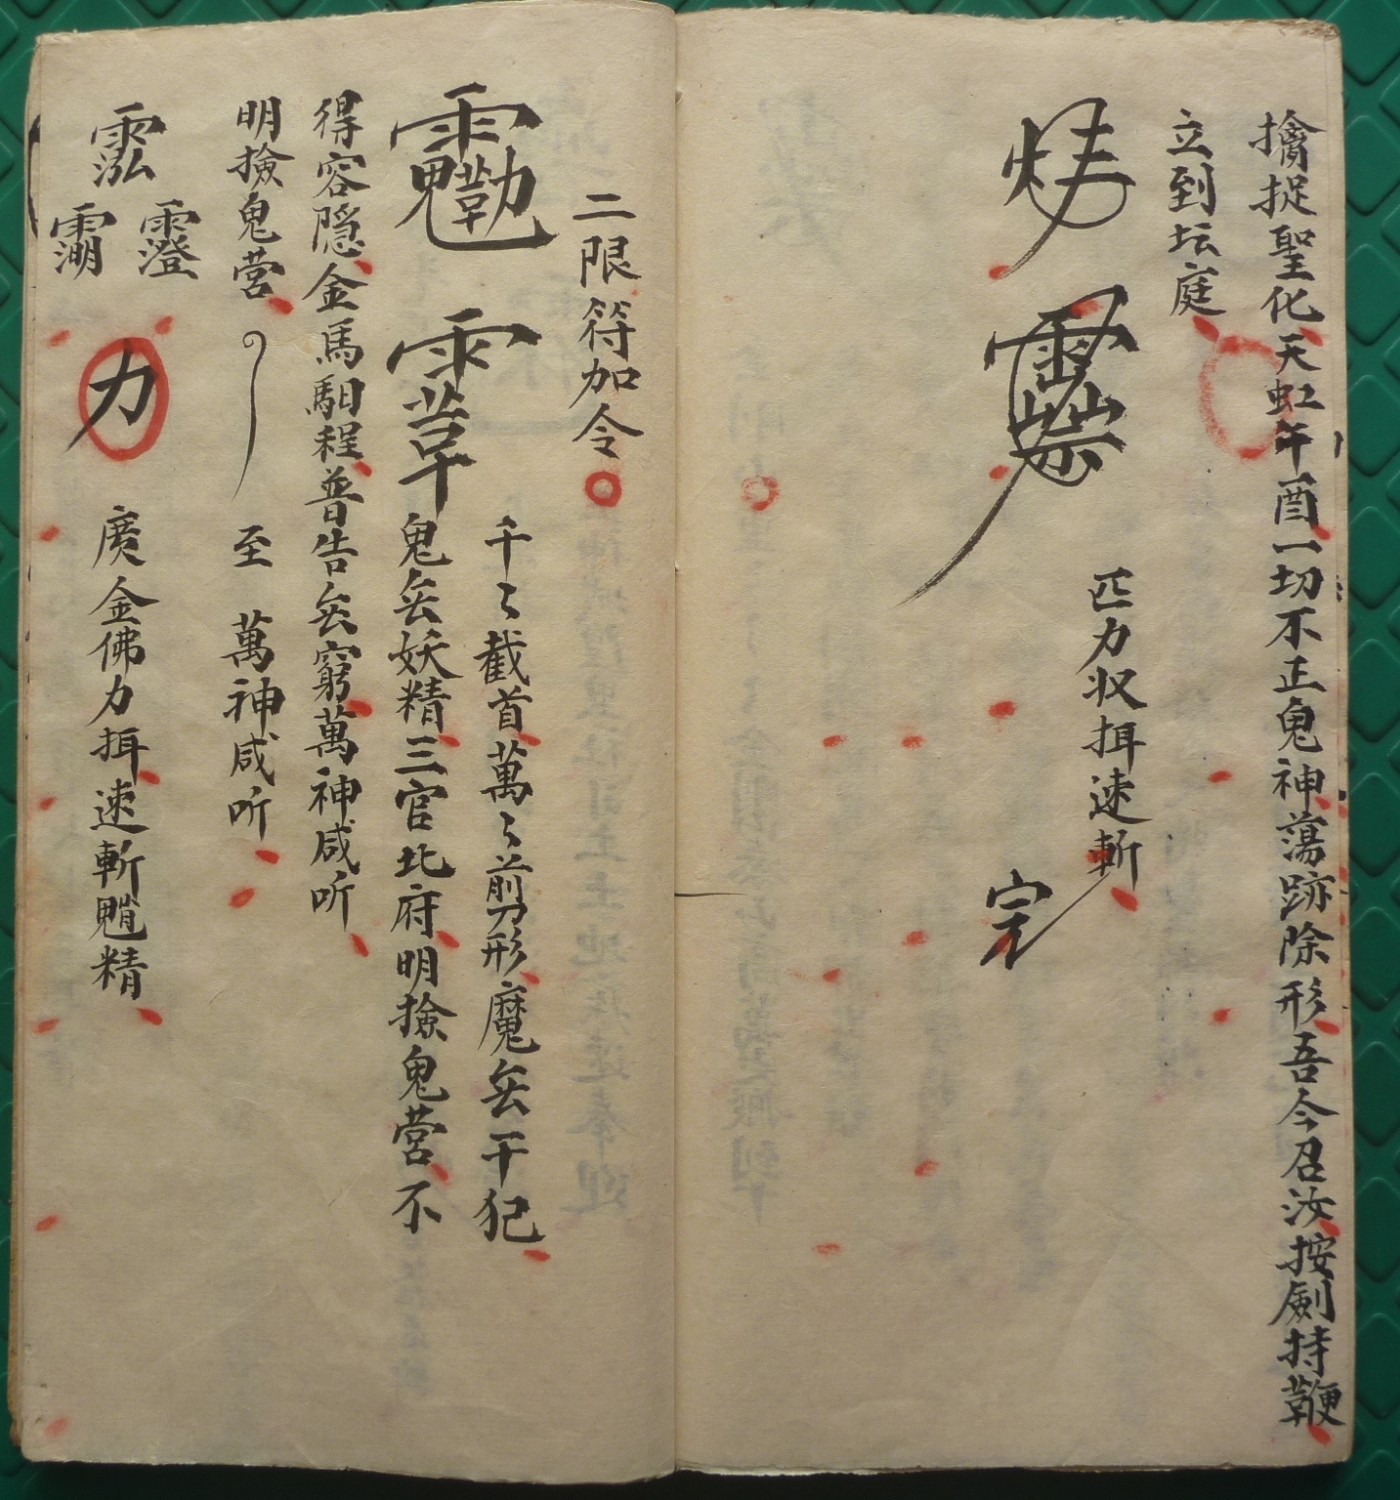 擒捉聖化天虹午酉一切不正鬼神蕩跡除形吾今召汝按劍持鞭
立到坛庭
匹力収挕速斬
完
二限符加令
千〻截首萬〻剪形魔兵干犯
鬼兵妖精三官北府明撿鬼营不
得容隐金馬馹程普告兵窮萬神咸听
明撿鬼营 至 萬神咸听
力 廣金佛力挕速斬精